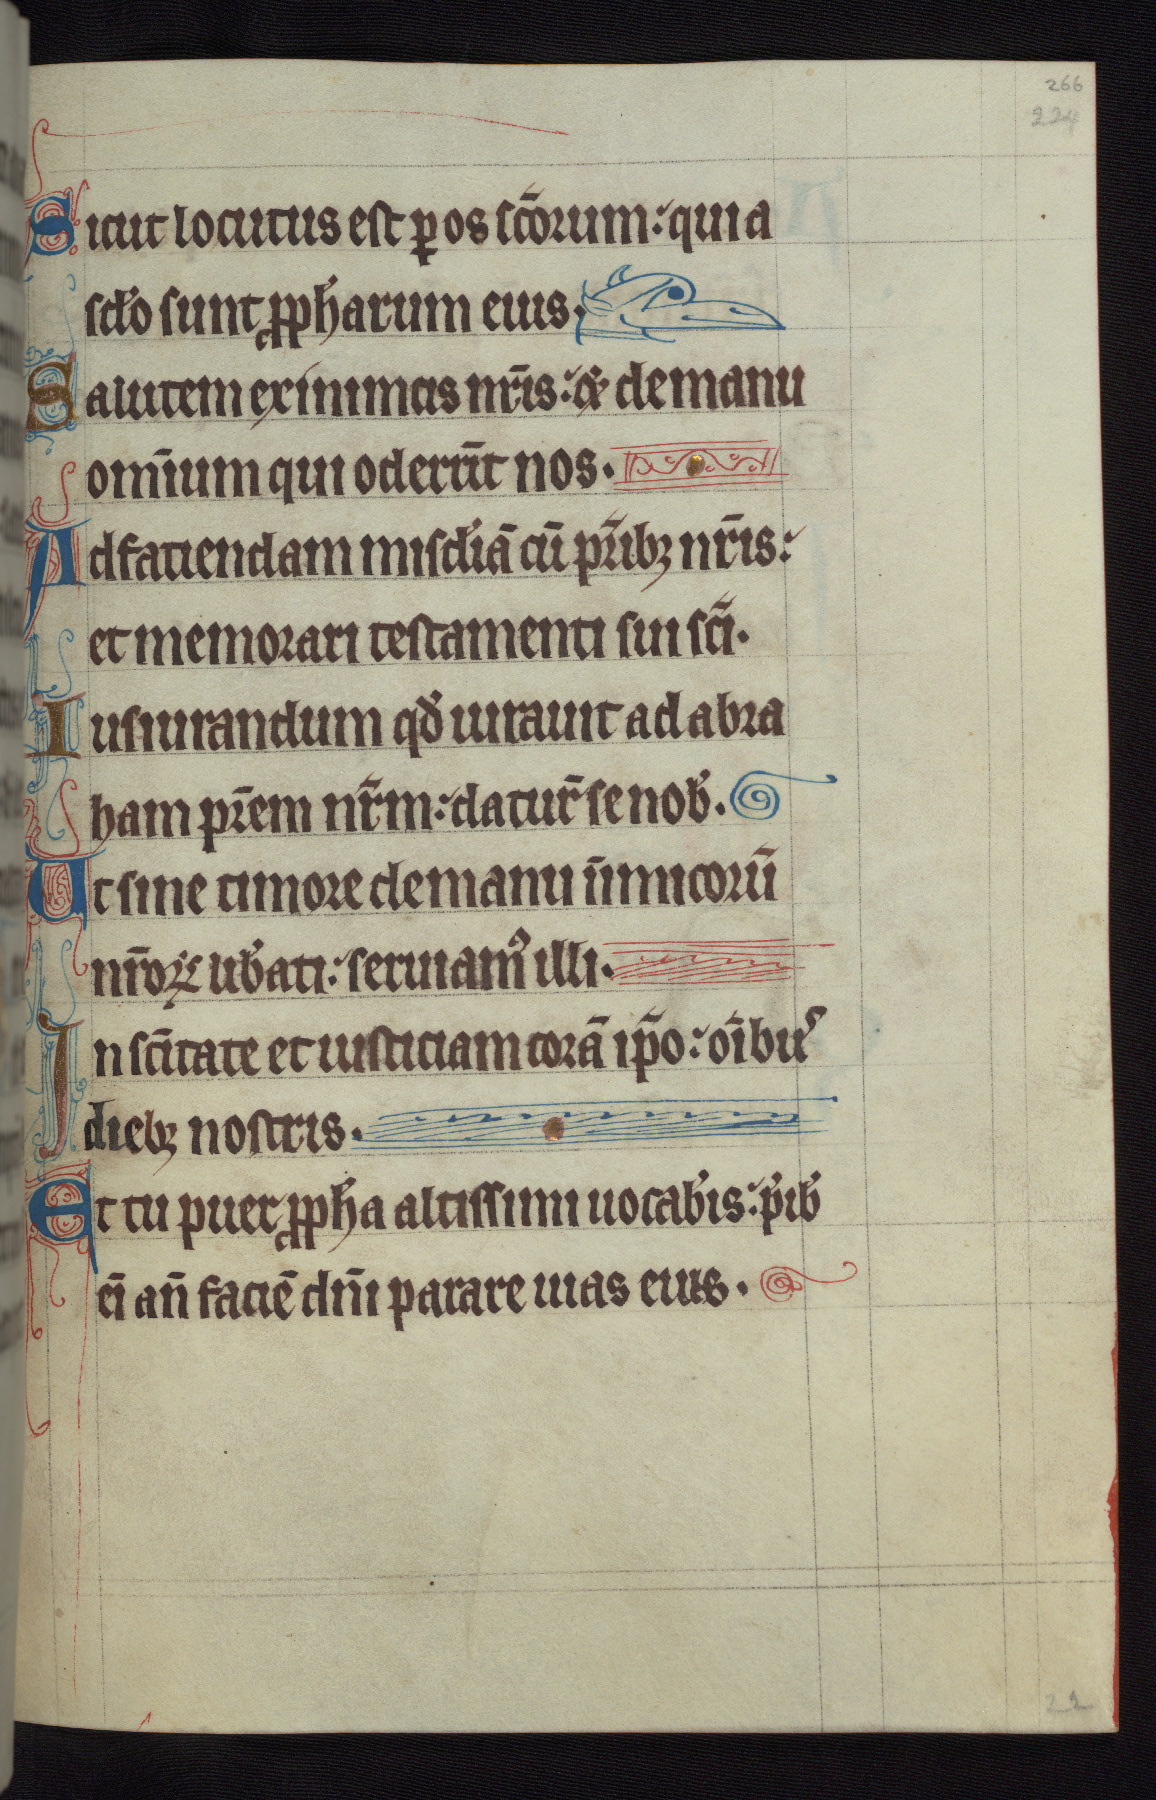 266
224
Sicut locutus est ꝑ os sc̄orum: quia
sc̄lo sunt ꝓph̄arum eius.
Salutem ex inimicis nr̄is: & de manu
om̄ium qui oderūt nos.
Ad faciendam misc̄diā cū pr̄ibꝫ nr̄is:
et memorari testamenti sui sc̄i.
Iusiurandum qd̄ iurauit ad abra
ham pr̄em nr̄m: daturꝰ se nob̄.
Ut sine timore de manu inimicorū
nr̄oꝝ lib̄ati: seruiamꝰ illi.
In sc̄itate et iusticiam corā ip̄o: oībuˢ
diebꝫ nostris.
Et tu puer ꝓph̄a altissimi uocab̄is: p̄ib̄
eī an̄ faciē dn̄i parare uias eius.
22